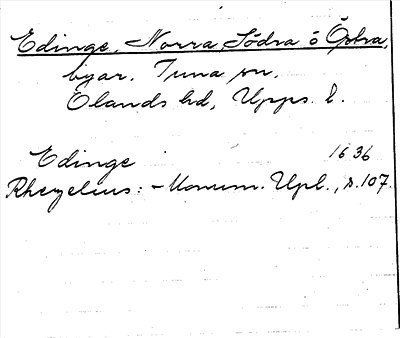 Edinge, Norra, Södra o Östra,
byar. Tuna sn.
Olands hd, Upps. l.
Edinge 1636
Rhezelius: - Monum. Upl., s. 107.